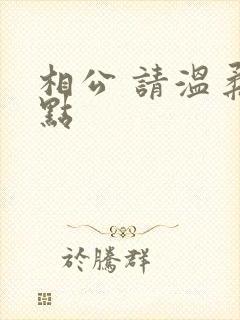 相公 請溫柔
點
於騰群